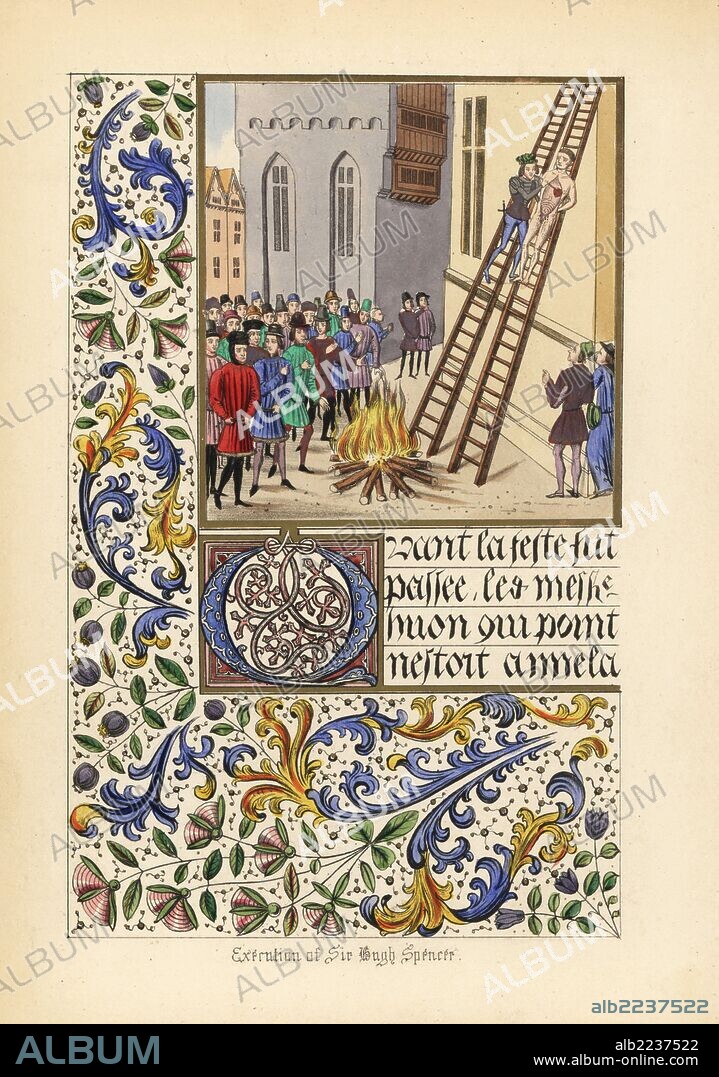 Quant la feste fut
passee, les
huon qui point
nestoit
Execution of Sir Hugh Spencer.
alb2237522
ALBUM
alb2237522
www.album-online.com